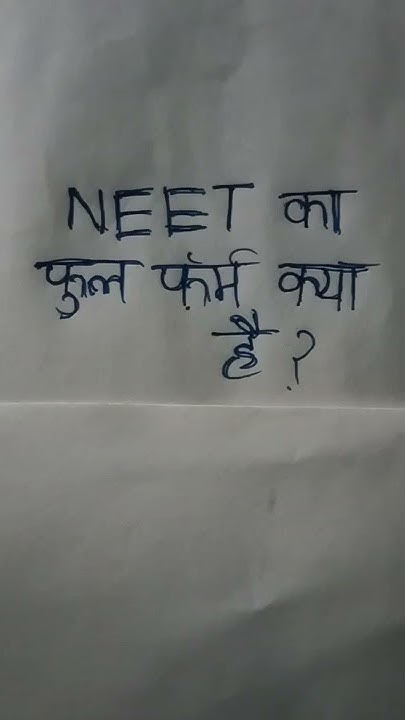 NEET का
फुल फॅर्म क्या
है?